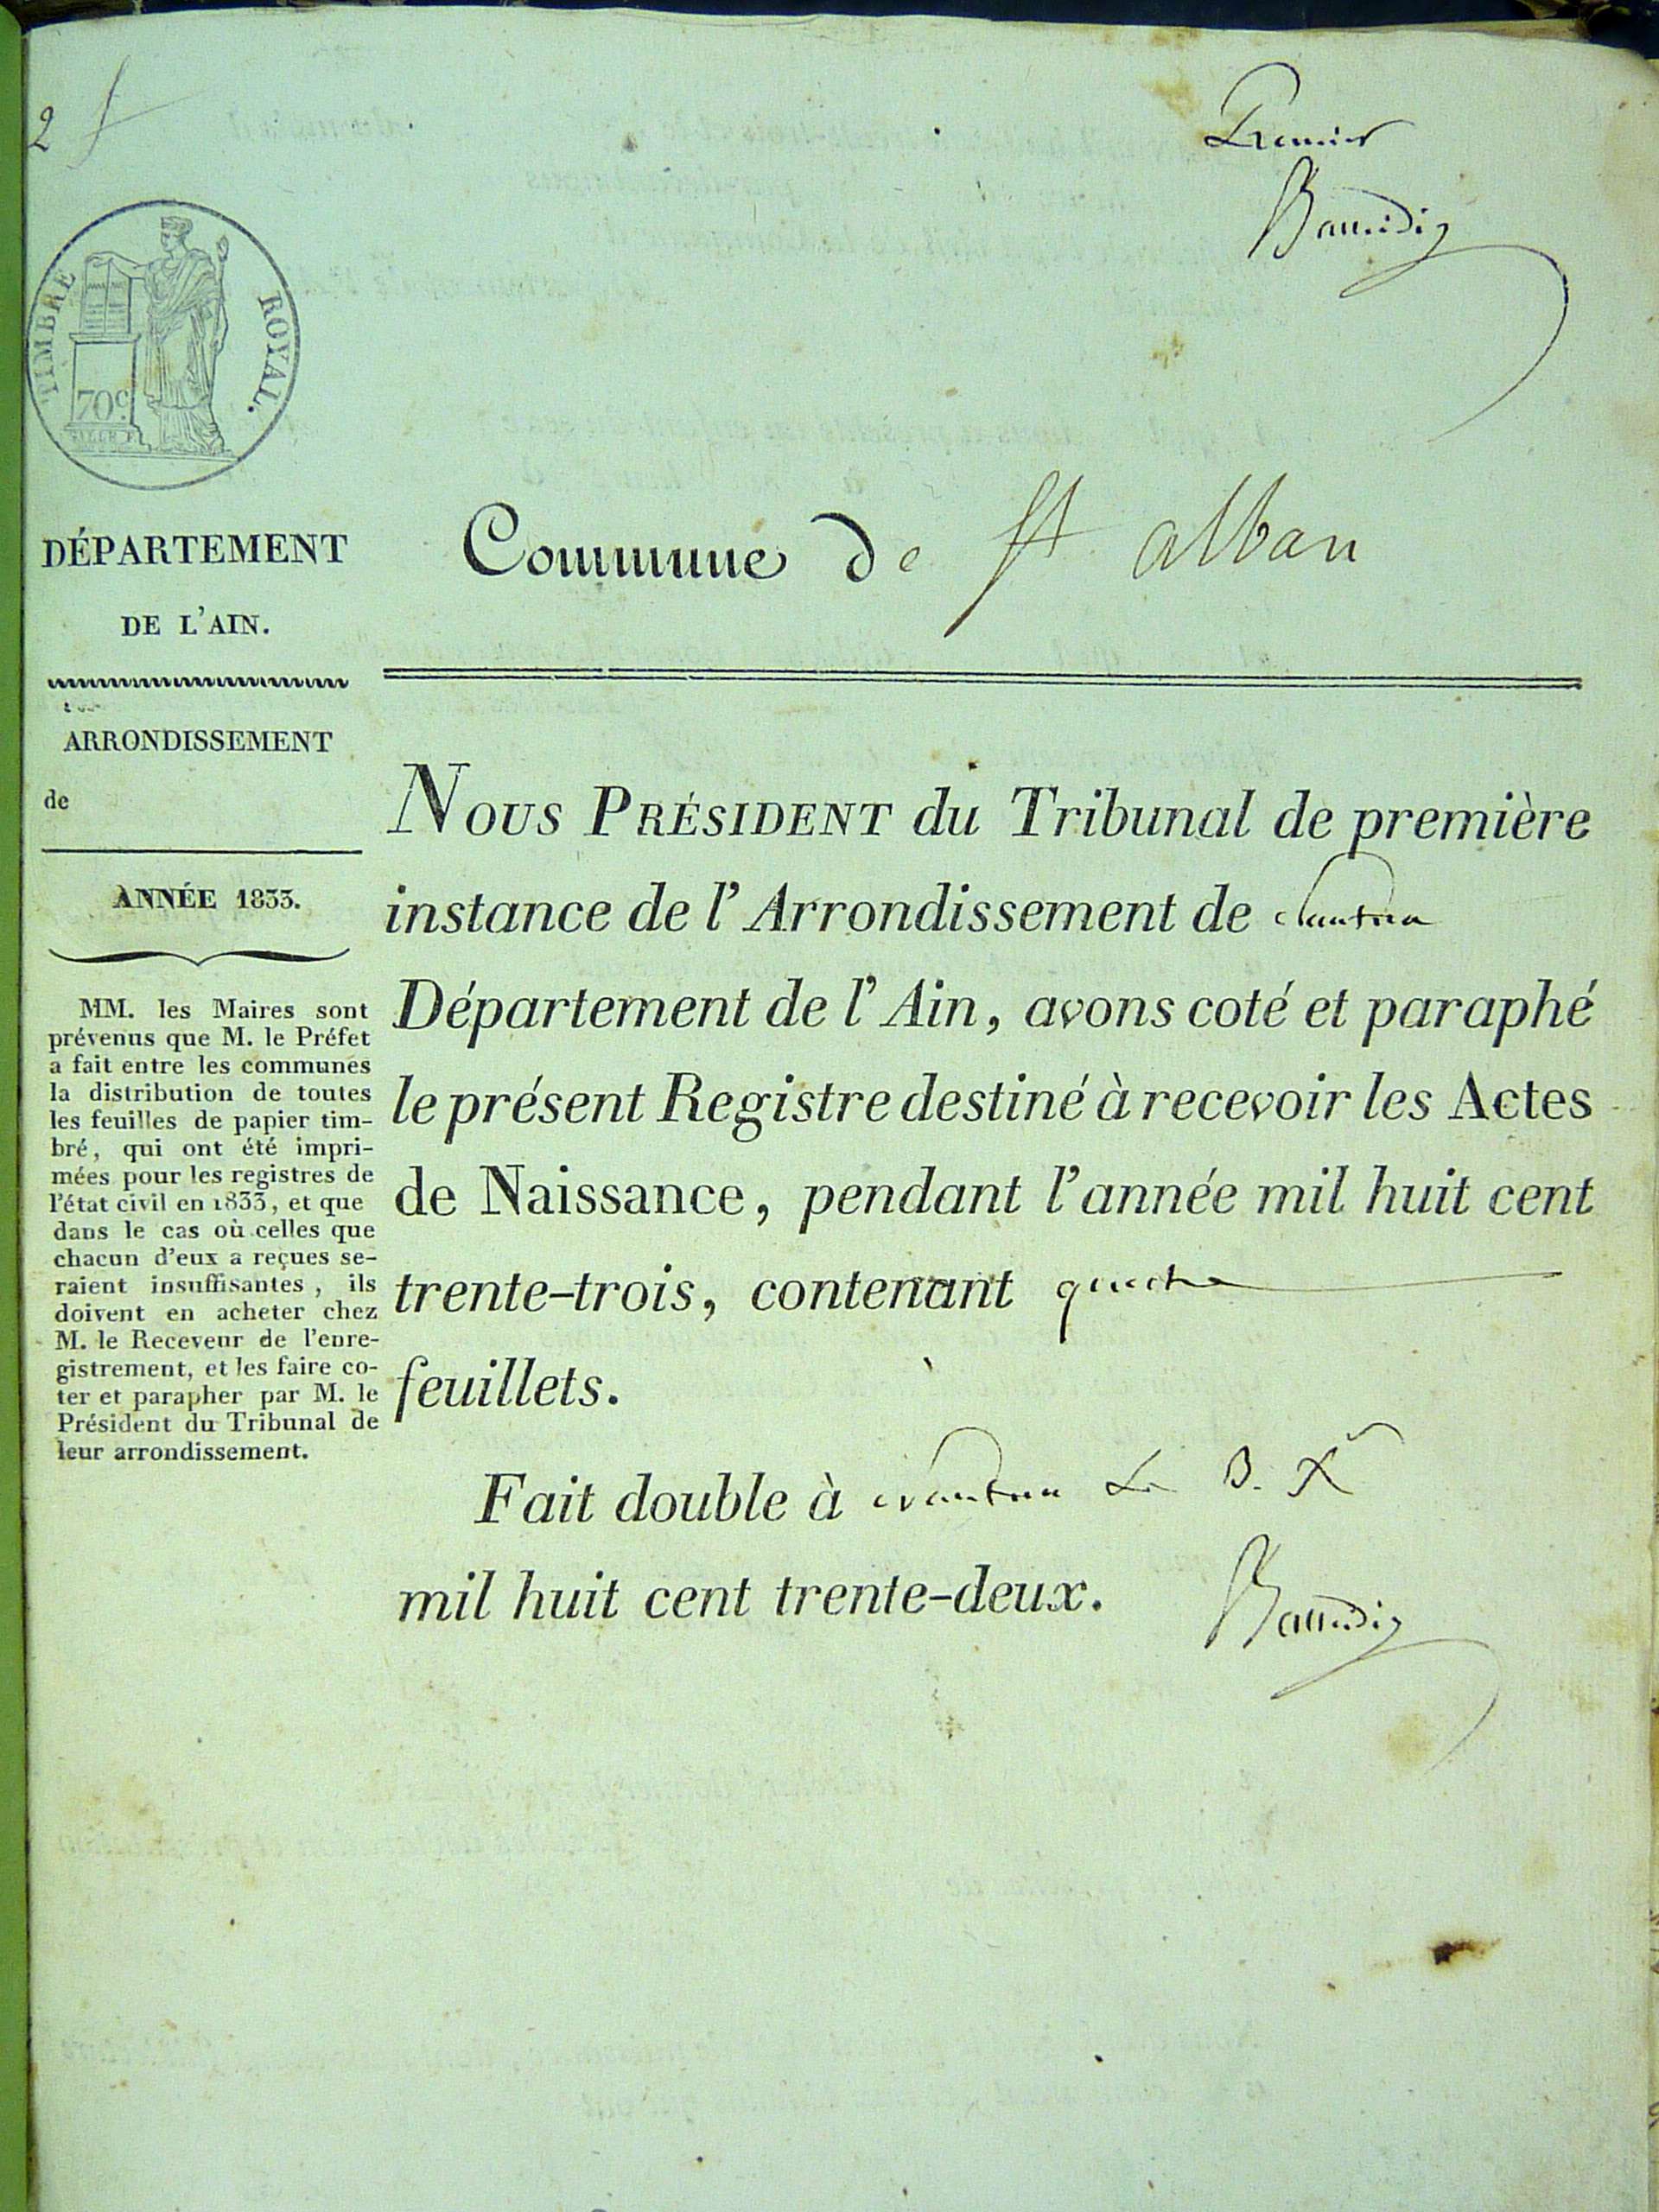 2
Premier
TIMBRE ROYAL.
70c.
DÉPARTEMENT
DE L'AIN.
ARRONDISSEMENT
de
ANNÉE 1833.
MM. les Maires sont
prévenus que M. le Préfet
a fait entre les communes
la distribution de toutes
les feuilles de papier tim-
bré, qui ont été impri-
mées pour les registres de
l'état civil en 1833, et que
dans le cas où celles que
chacun d'eux a reçues se-
raient insuffisantes, ils
doivent en acheter chez
M. le Receveur de l'enre-
gistrement, et les faire co-
ter et parapher par M. le
Président du Tribunal de
leur arrondissement.
Commune de St alban
NOUS PRÉSIDENT du Tribunal de première
instance de l'Arrondissement de Nantua
Département de l'Ain, avons coté et paraphé
le présent Registre destiné à recevoir les Actes
de Naissance, pendant l'année mil huit cent
trente-trois, contenant quatre
feuillets.
Fait double à Nantua Le 3. Xr
mil huit cent trente-deux.